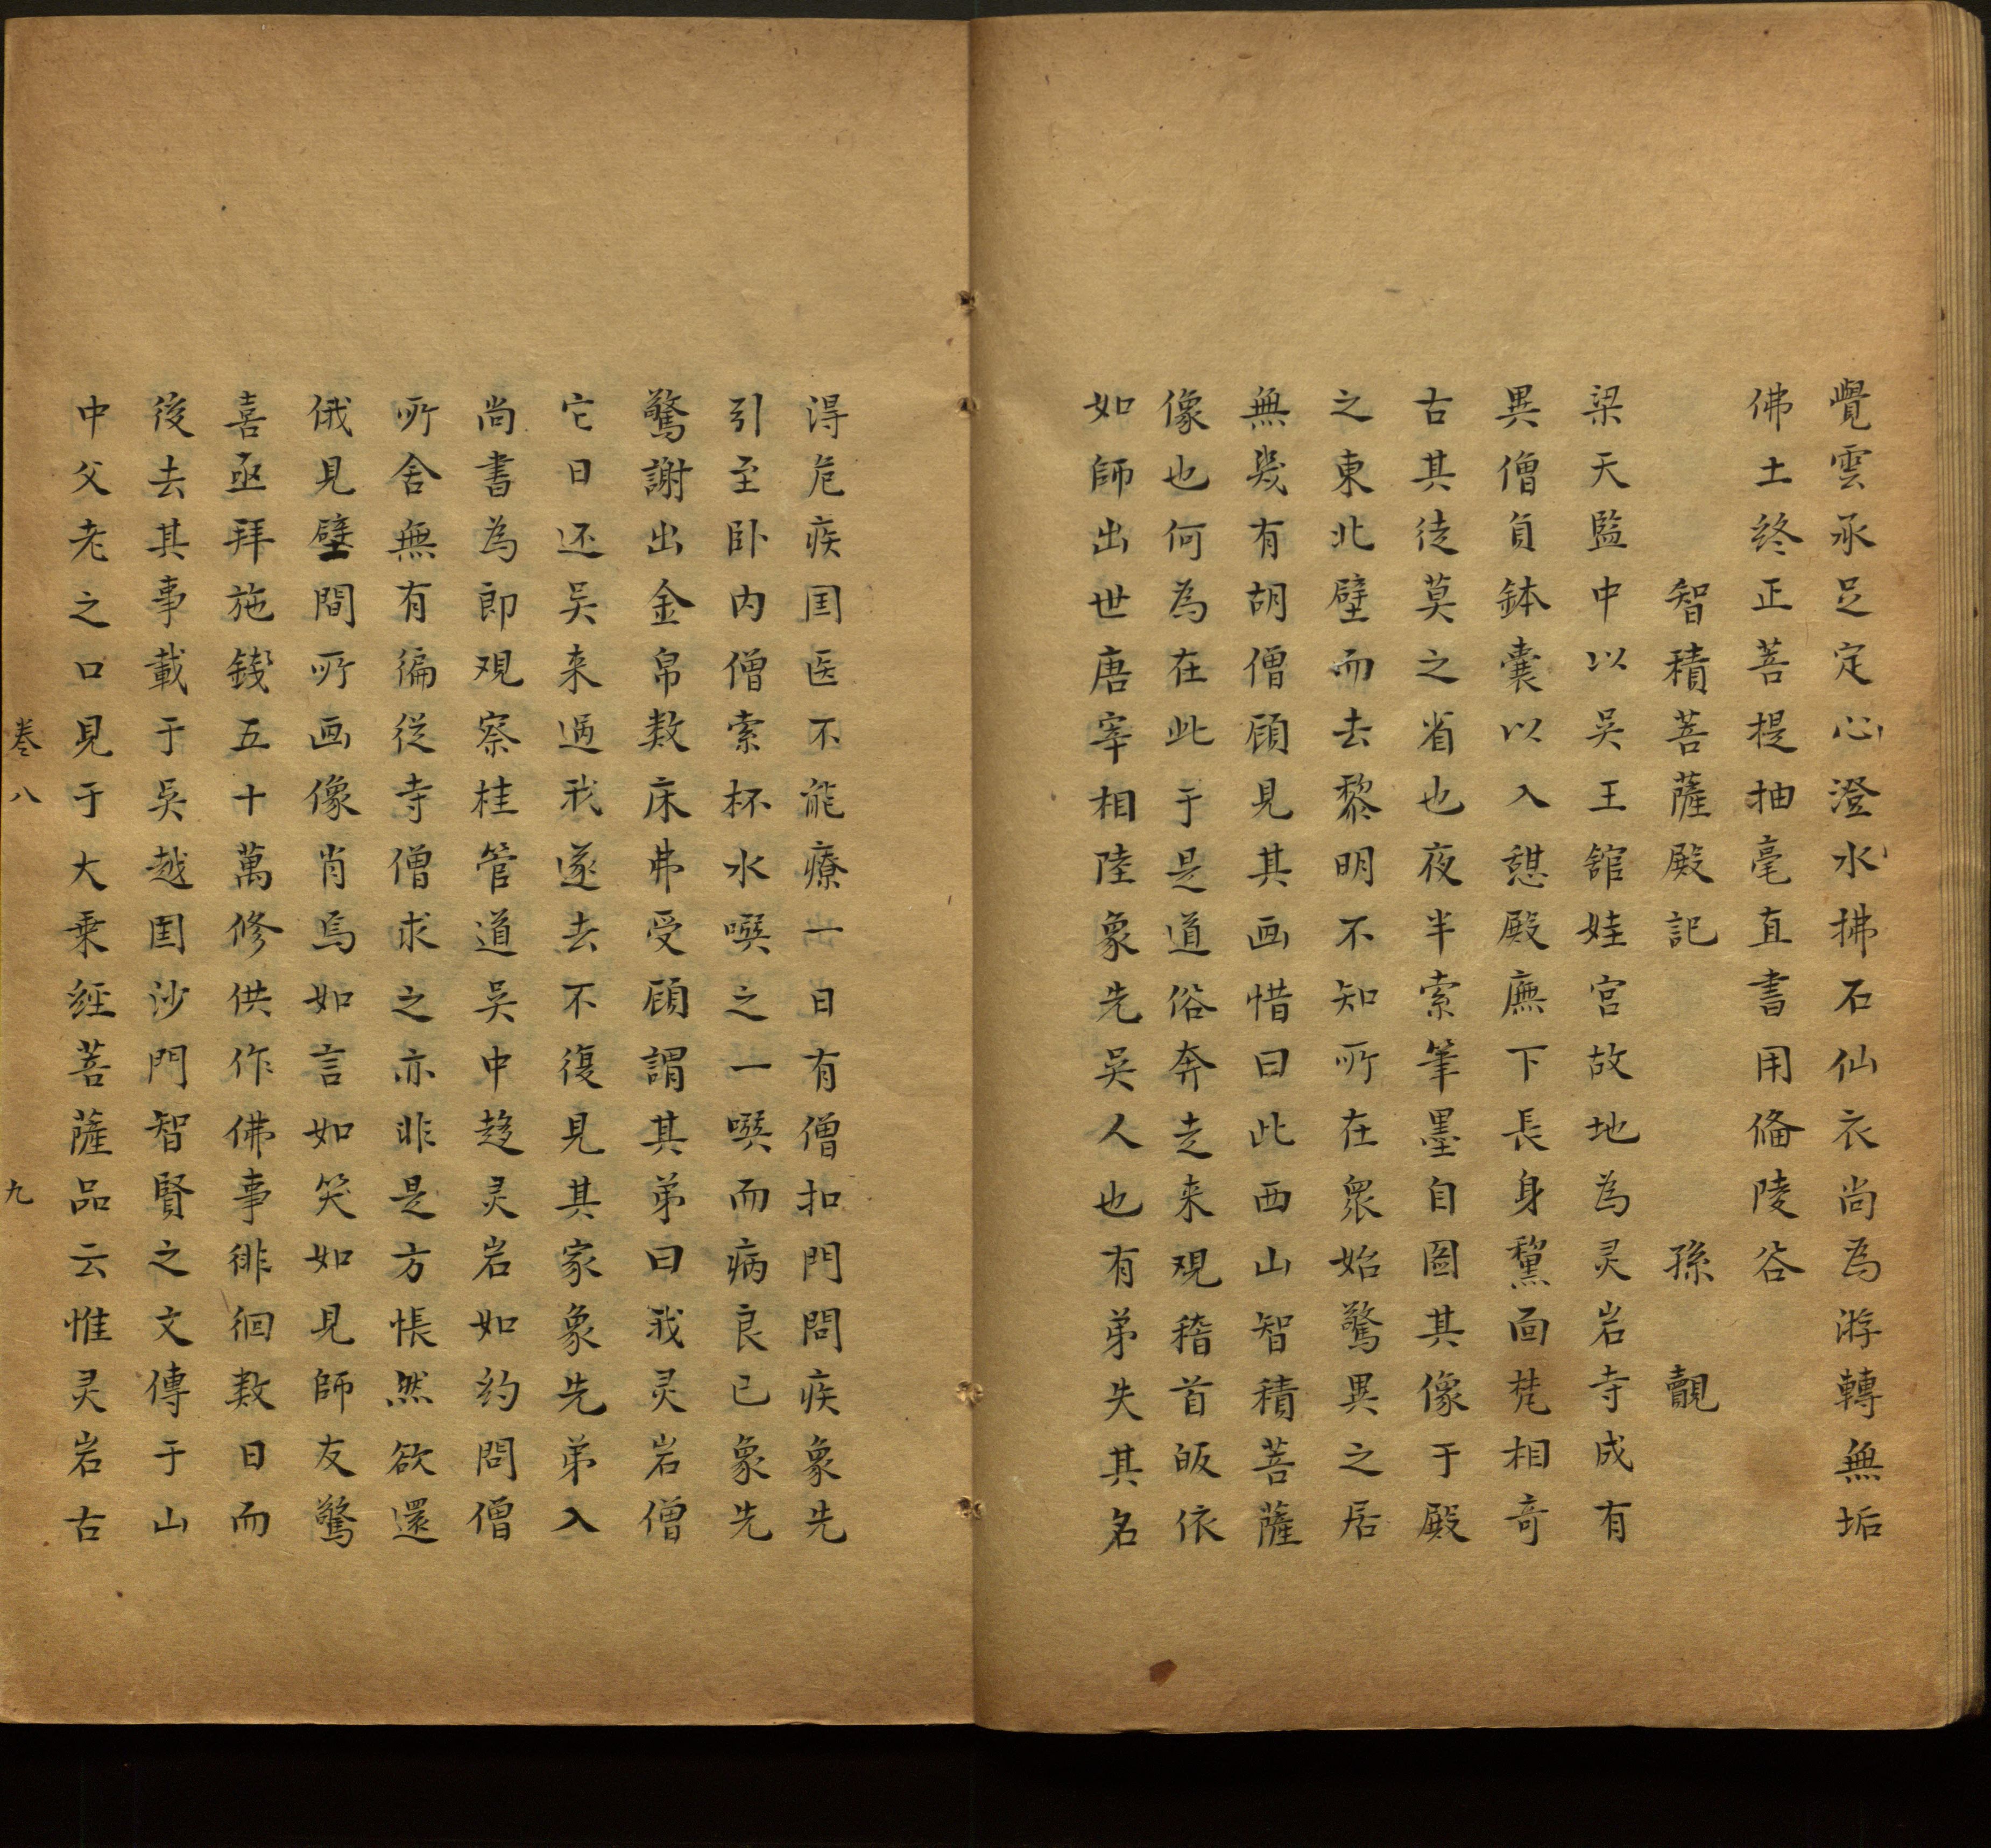 覺雲承足定心澄水拂石仙衣尚為游轉無垢
佛土終正菩提抽毫直書用俻陵谷
智積菩薩殿記 孫覿
梁天監中以吴王舘娃宫故地為灵岩寺成有
異僧負鉢囊以入憇殿廡下長身黧面梵相奇
古其徒莫之省也夜半索筆墨自圖其像于殿
之東北壁而去黎明不知所在衆始驚異之居
無幾有胡僧顧見其画惜曰此西山智積菩薩
像也何為在此于是道俗奔走来观稽首皈依
如師出世唐宰相陸象先吴人也有弟失其名
得危疾囯医不能療一日有僧扣門問疾象先
引至卧内僧索杯水噀之一噀而病良已象先
驚謝出金帛数床弗受顧謂其弟曰我灵岩僧
它日还吴来過我遂去不復見其家象先弟入
尚書為郎观察桂管道吴中趍灵岩如约問僧
所舍無有徧從寺僧求之亦非是方悵然欲還
俄見壁間所画像肖焉如言如笑如見師友驚
喜亟拜施錢五十萬修供作佛事徘徊数日而
後去其事載于吴越囯沙門智賢之文傳于山
中父老之口見于大乗經菩薩品云惟灵岩古
卷八 九